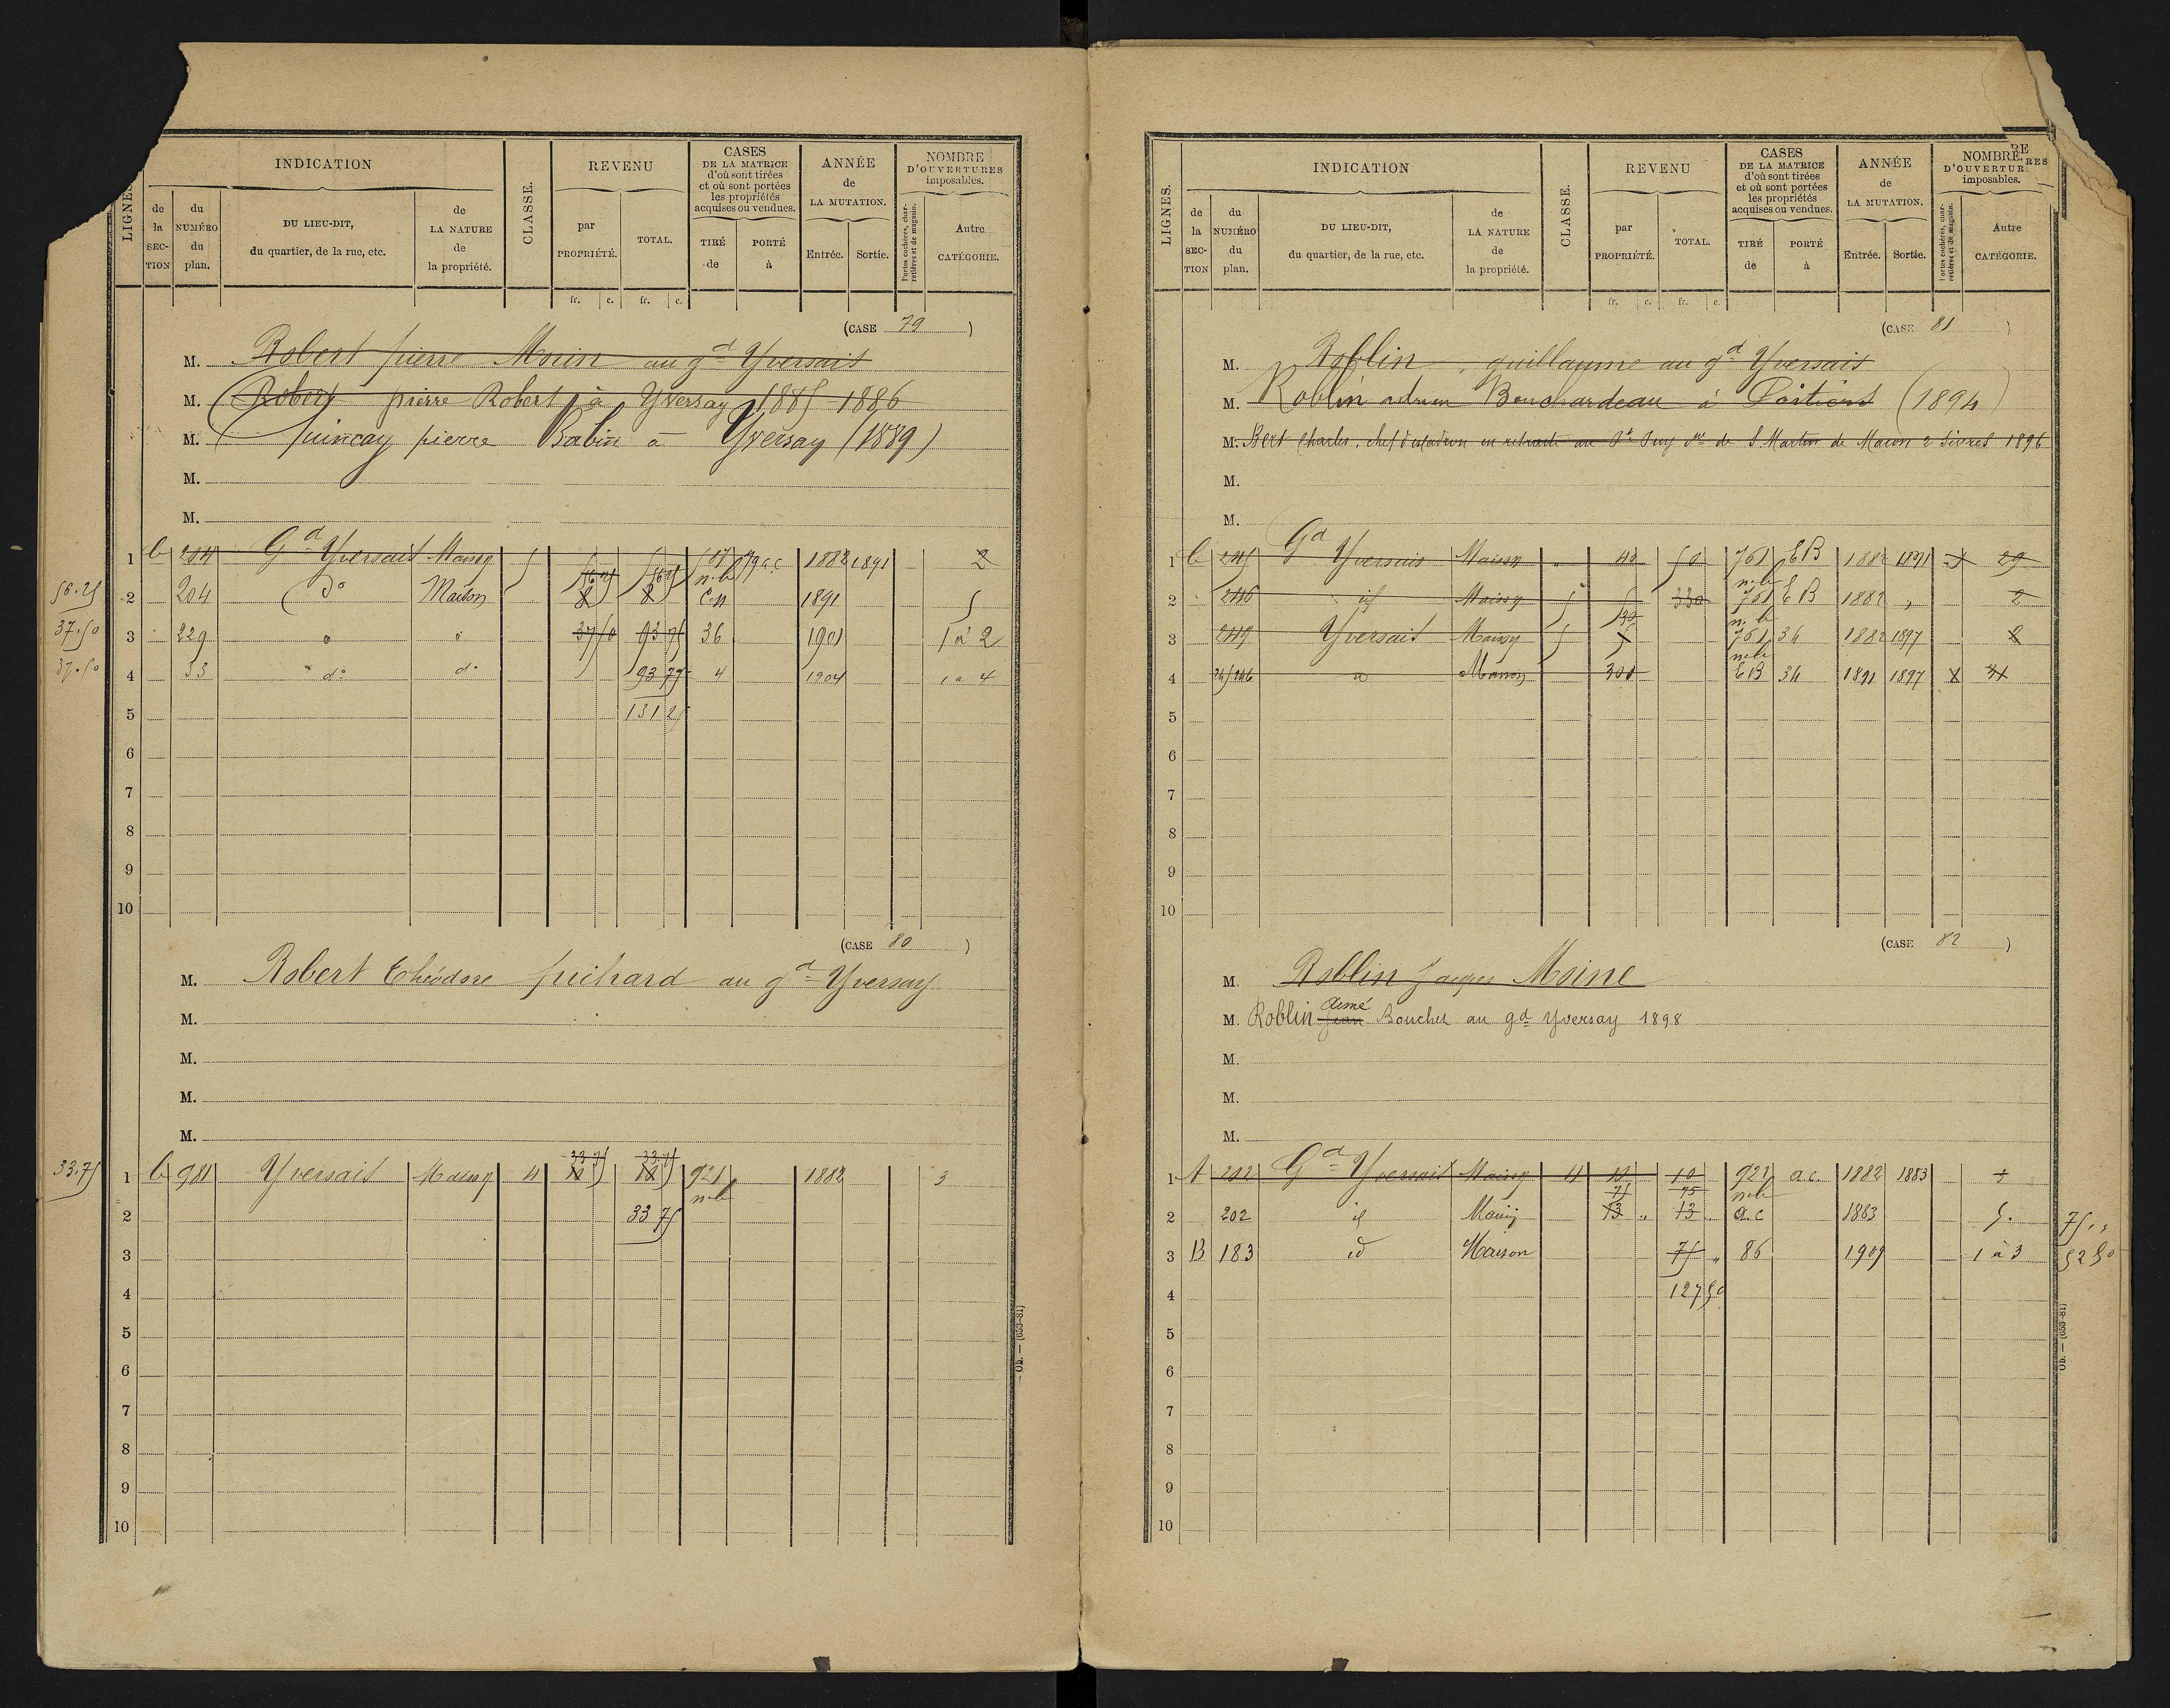 LIGNES.
INDICATION
de la SECTION
du NUMÉRO du plan.
DU LIEU-DIT, du quartier, de la rue, etc.
de LA NATURE de la propriété.
CLASSE.
REVENU
par PROPRIÉTÉ.
TOTAL.
fr. c. fr. c.
CASES DE LA MATRICE d'où sont tirées et où sont portées les propriétés acquises ou vendues.
TIRÉ de
PORTÉ à
ANNÉE de LA MUTATION.
Entrée. Sortie.
NOMBRE D'OUVERTURES imposables.
Portes cochères, charretières et de magasin.
Autre CATÉGORIE.
(CASE 79)
M. Robert pierre Morin au gd Yversais
M. Robert pierre Robert à Yversay 1885-1886
M. Quinçay pierre Babin à Yversay (1889)
M.
M.
1 204 Gd Yversais Maison 5 1882 1891 2
56.25 2 204 do Maison 8 8 1891 5
37.50 3 229 37 50 93 75 36 1901 1 à 2
37.50 4 33 do do 93 75 4 1904 1 a 4
5 131 25
6
7
8
9
10
(CASE 80)
M. Robert Théodore Guichard au gd Yversay
M.
M.
M.
M.
33.75 1 981 Yversais Maison 4 33 75 33 75 921 1882 3
2 33 75
3
4
5
6
7
8
9
10
Ob. — (653-81)
LIGNES.
INDICATION
de la SECTION
du NUMÉRO du plan.
DU LIEU-DIT, du quartier, de la rue, etc.
de LA NATURE de la propriété.
CLASSE.
REVENU
par PROPRIÉTÉ.
TOTAL.
fr. c. fr. c.
CASES DE LA MATRICE d'où sont tirées et où sont portées les propriétés acquises ou vendues.
TIRÉ de
PORTÉ à
ANNÉE de LA MUTATION.
Entrée. Sortie.
NOMBRE D'OUVERTURES imposables.
Portes cochères, charretières et de magasin.
Autre CATÉGORIE.
(CASE 81)
M. Roblin guillaume au gd Yversais
M. Roblin adrien Bouchardeau à Poitiers (1894)
M. Bert Charles, chef d'escadron en retraite au Pt Puy de S. Martin de Macon 2 Sèvres 1896
M.
M.
1 245 Gd Yversais Maison 40 50 761 EB 1882 1891 29
2 246 id Maison 5 330 761 EB 1882 2
3 249 Yversais Maison 5 761 34 1882 1897 2
4 245/246 Maison 300 EB 34 1891 1897
5
6
7
8
9
10
(CASE 82)
M. Roblin Jacques Moine
M. Roblin Jean Aimé Boucher au gd Yversay 1898
M.
M.
M.
1 A 202 Gd Yversais Maison 4 10 10 922 a.c. 1882 1883
2 202 id Maison 75 13 75 13 a.c 1883 5. 75
3 B 183 id Maison 75 86 1909 1 à 3 52 50
4 127 50
5
6
7
8
9
10
Ob. — (653-81)